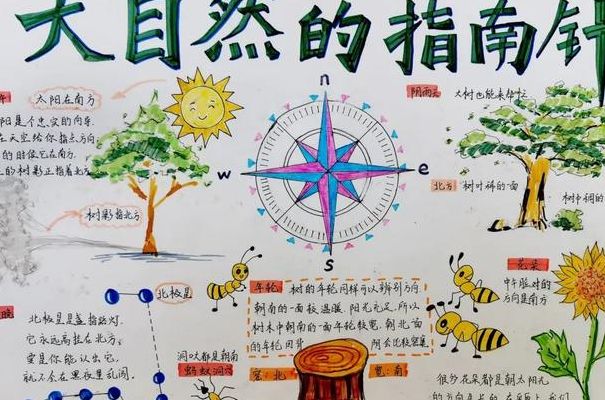 大自然的指南针
太阳在南方
阳是个忠实的向导
在天空给你指点方向
的时候它在南方
的树影正指着北方
树影指北方
n
w
e
s
阴雨天
大树也能来帮忙
北方
树叶稀的一面
树叶稠的
北极星
北极星是盏指路灯
它永远高挂在北方
要是你能认出它
就不会在黑夜里乱闯
年轮
树的年轮同样可以辨别方向
朝南的一面较温暖,阳光充足,所以
树木中朝南的一面年轮较宽,朝北一面
的年轮
会比较窄
洞口都是朝南
蚂蚁洞穴
窄:北
宽:南
花朵
中午脸对的
方向是南方
很多花朵都是朝太阳光